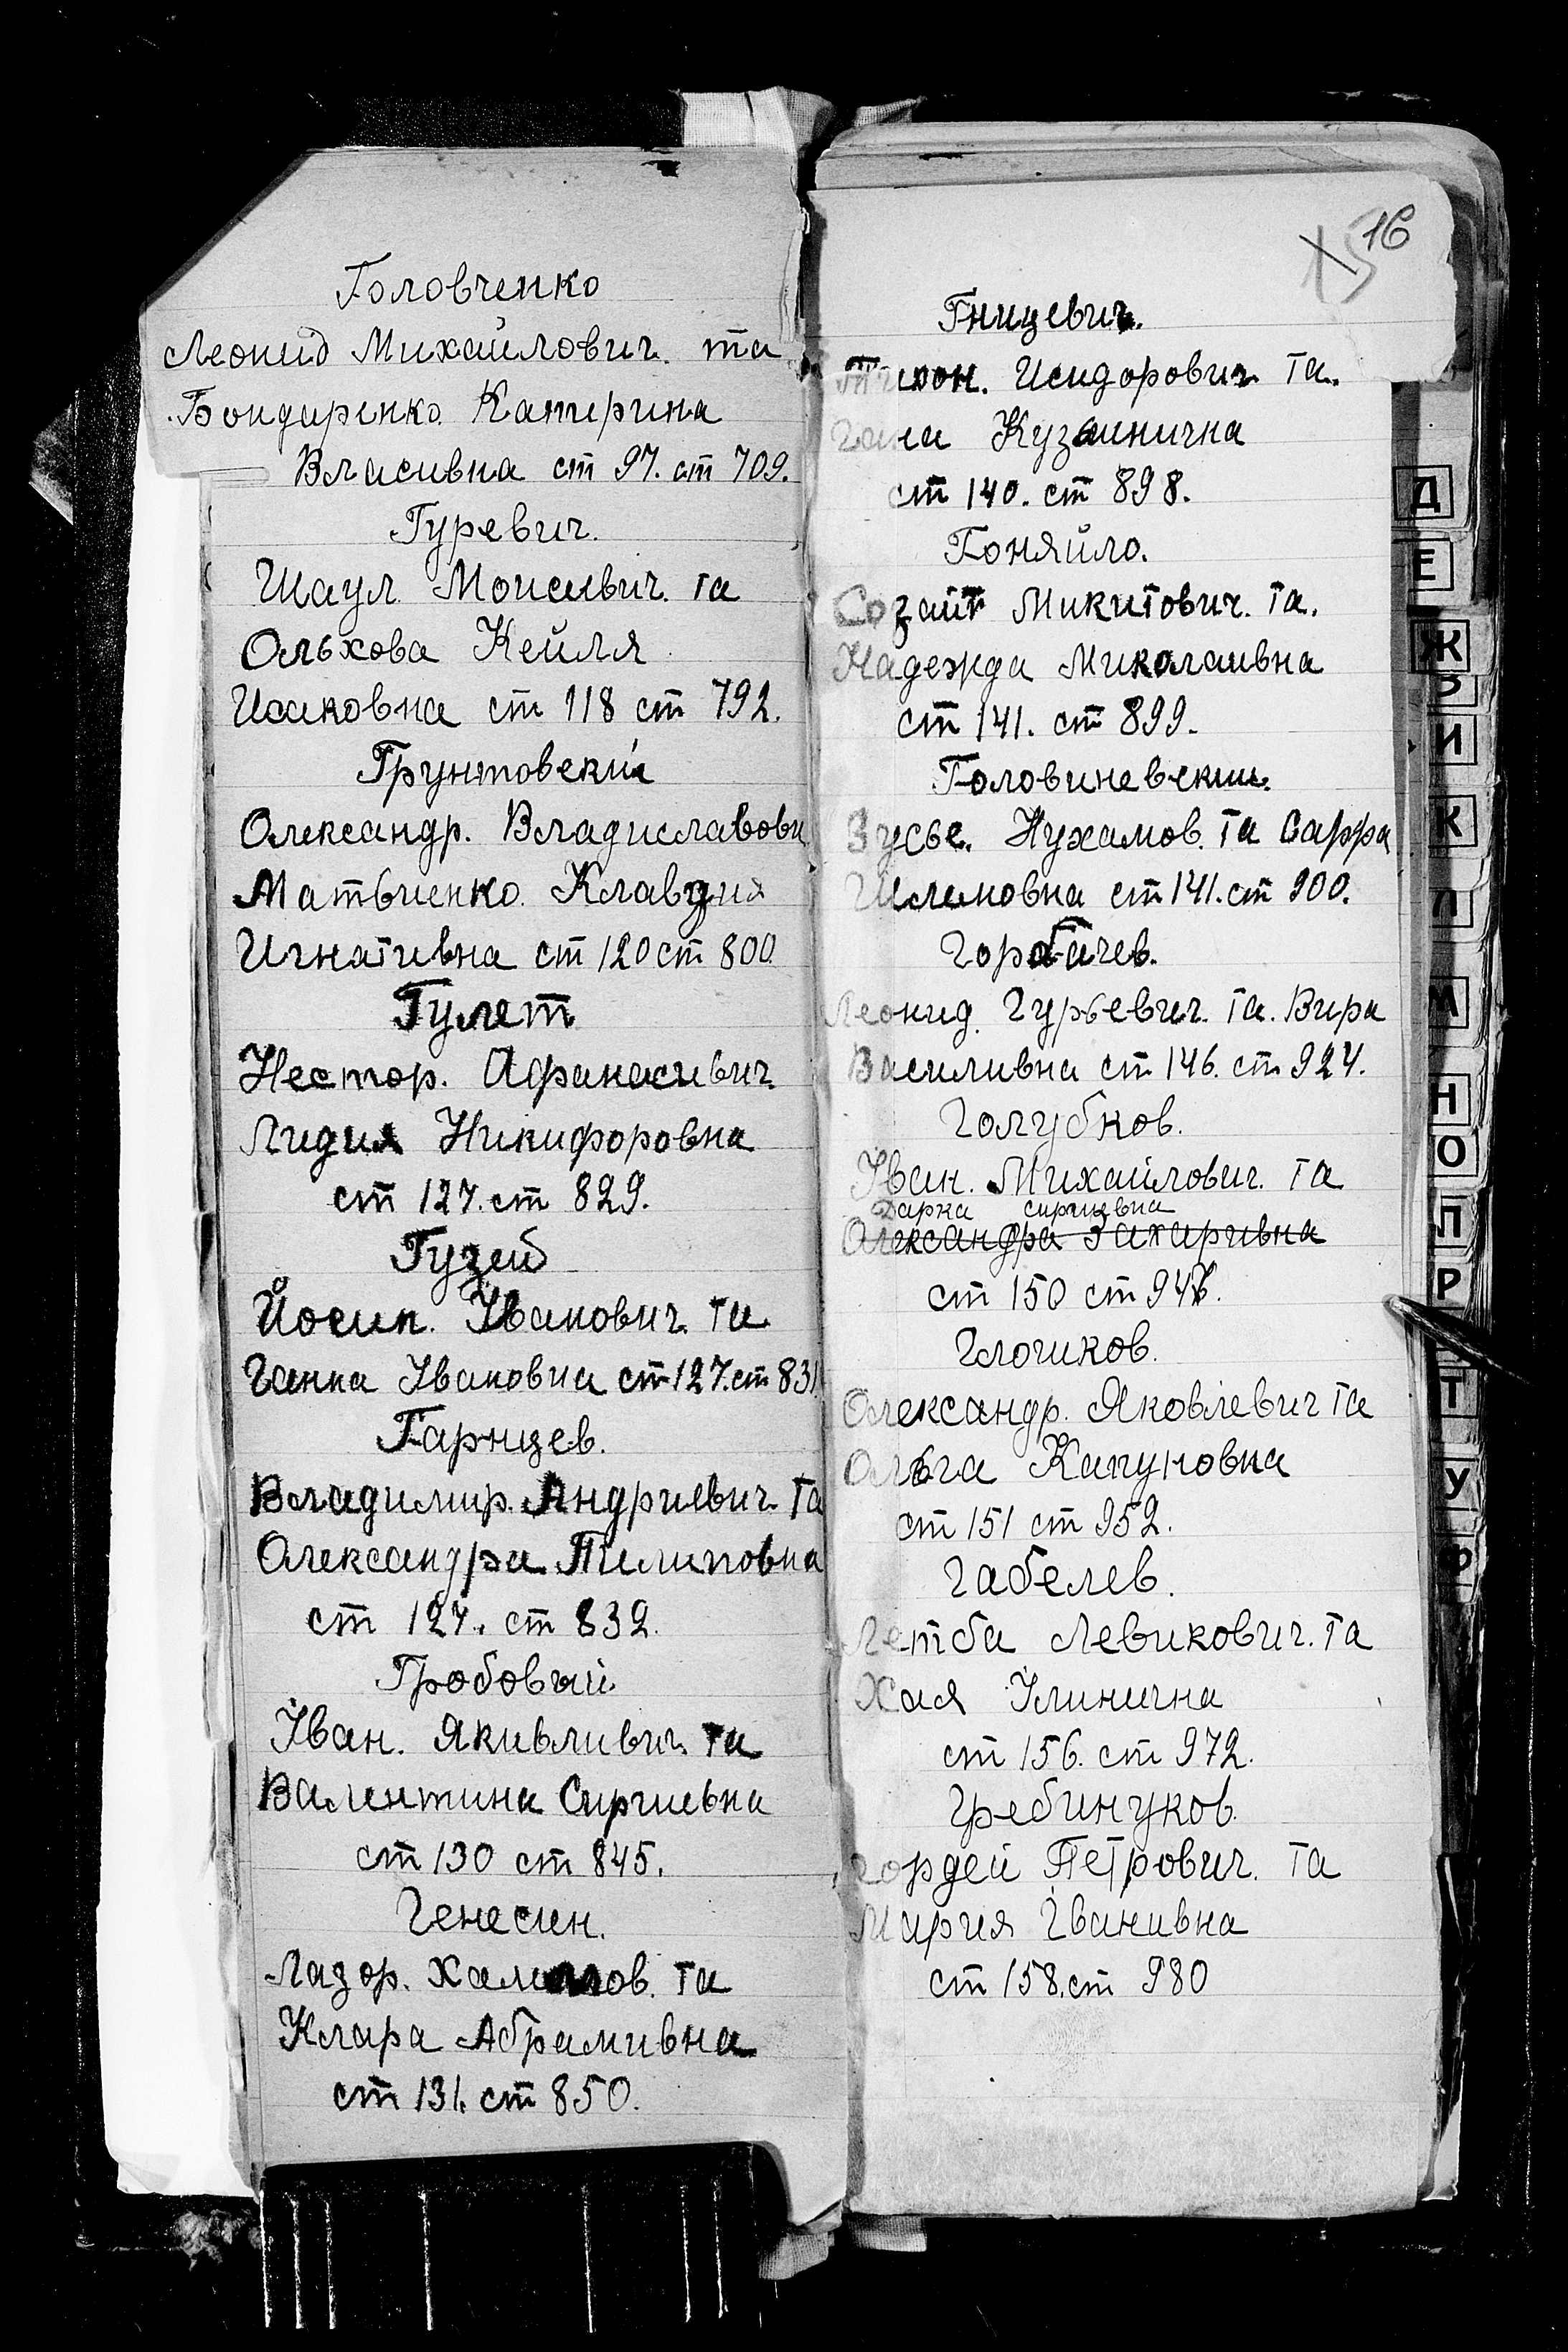 Головченко
Леонид Михайлович. та
Бондаренко. Катерина
Власивна ст 97. ст 709.
Гуревич.
Шаул Моисевич. та
Ольхова Кейля
Исаковна ст 118 ст 792.
Грунтовский
Олександр. Владиславови
Матвиенко. Клавдия
Игнативна ст 120 ст 800
Гулет
Нестор. Афанасивич.
Лидия Никифоровна
ст 127. ст 829.
Гузей
Йосип. Іванович. та
Ганна Івановна ст 127. ст 831
Гарнцев.
Владимир. Андриевич. та
Олександра Пилиповна
ст 127. ст 832.
Гробовый
Іван. Якивливич. та
Валентина Сиргиевна
ст 130 ст 845.
Генесин.
Лазор. та
Клара Абрамивна
ст 131. ст 850.
15 16
Гницевич.
Тихон. Исидорович та.
Гала Кузминична
ст 140. ст 898.
Гоняйло.
Созайт Микитович. та.
Надежда Миколаивна
ст 141. ст 899.
Головиневский.
Зусье. Нухамов. та Сарра
Шлемовна ст 141. ст 900.
Горбачев.
Леонид. Гурьевич. та. Вира
Василивна ст 146. ст 924.
Голубков.
Іван. Михайлович. та
Дарка сиргиевна
Олександра Захаривна
ст 150 ст 946.
Глочиков.
Олександр. Яковлевич та
Ольга Капуновна
ст 151 ст 952.
Габелев.
Лейба Левикович. та
Хая Илинична
ст 156. ст 972.
Гребинуков.
Гордей Петрович. та
Мария Іванивна
ст 158. ст 980
Д
Е
Ж
З
И
К
Л
М
Н
О
П
Р
Т
У
Ф